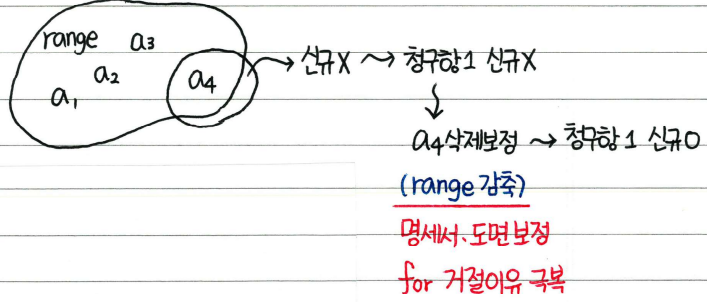 range a3
a2
a1
a4
→ 신규X → 청구항1 신규X
↓
a4삭제보정 → 청구항1 신규O
(range 감축)
명세서、도면보정
for 거절이유 극복